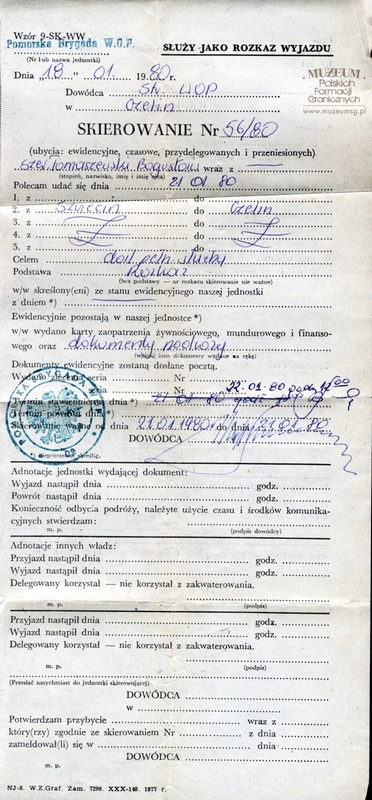 Wzór 9-SK-WW
Pomorska Brygada W.O.P.
SŁUŻY JAKO ROZKAZ WYJAZDU
(Nr lub nazwa jednostki)
Dnia „18” 01. 1980 r.
MUZEUM
Polskich
Formacji
Granicznych
www.muzeumsg.pl
Dowódca SK. WOP
w Czelin
SKIEROWANIE Nr 56/80
(ubycia: ewidencyjne, czasowe, przydelegowanych i przeniesionych)
szer. Tomaszewski Bogusław wraz z
(stopień, nazwisko, imię i imię ojca)
Polecam udać się dnia 21 01 80
1. z do
2. z Szczecin do Czelin
3. z do
4. z do
5. z do
Celem dalszej służby
Podstawa Rozkaz
(bez podstawy — nr rozkazu skierowanie nie ważne)
w/w skreślony(eni) ze stanu ewidencyjnego naszej jednostki
z dniem *)
Ewidencyjnie pozostają w naszej jednostce *)
w/w wydano karty zaopatrzenia żywnościowego, mundurowego i finanso-
wego oraz dokumenty podróży
(wpisać inne dokumenty wydane na rękę)
Dokumenty ewidencyjne zostaną dosłane pocztą.
Wydano seria Nr
Nr
22.01.80 godz. 12 00
Termin stawiennictwa dnia *) 21 01 80 godz.
Termin powrotu dnia *)
Skierowanie ważne od dnia 21.01.1980 do dnia 23.01.80
DOWÓDCA
*) niepotrzebne skreślić.
Adnotacje jednostki wydającej dokument:
Wyjazd nastąpił dnia godz.
Powrót nastąpił dnia godz.
Konieczność odbycia podróży, należyte użycie czasu i środków komunika-
cyjnych stwierdzam:
m. p. (podpis dowódcy)
Adnotacje innych władz:
Przyjazd nastąpił dnia godz.
Wyjazd nastąpił dnia godz.
Delegowany korzystał — nie korzystał z zakwaterowania.
m. p. (podpis)
Przyjazd nastąpił dnia godz.
Wyjazd nastąpił dnia godz.
Delegowany korzystał — nie korzystał z zakwaterowania.
m. p. (podpis)
(Przesłać natychmiast do jednostki skierowującej)
DOWÓDCA
w
Potwierdzam przybycie wraz z
który(rzy) zgodnie ze skierowaniem Nr z dnia
zameldował(li) się w dnia
DOWÓDCA
NJ-8. W.Z.Graf. Zam. 7299. XXX-140. 1977 r.